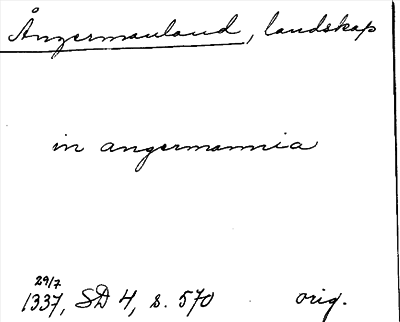 Ångermanland, landskap
in angermannia
29/7
1337, SD 4, s. 570 orig.